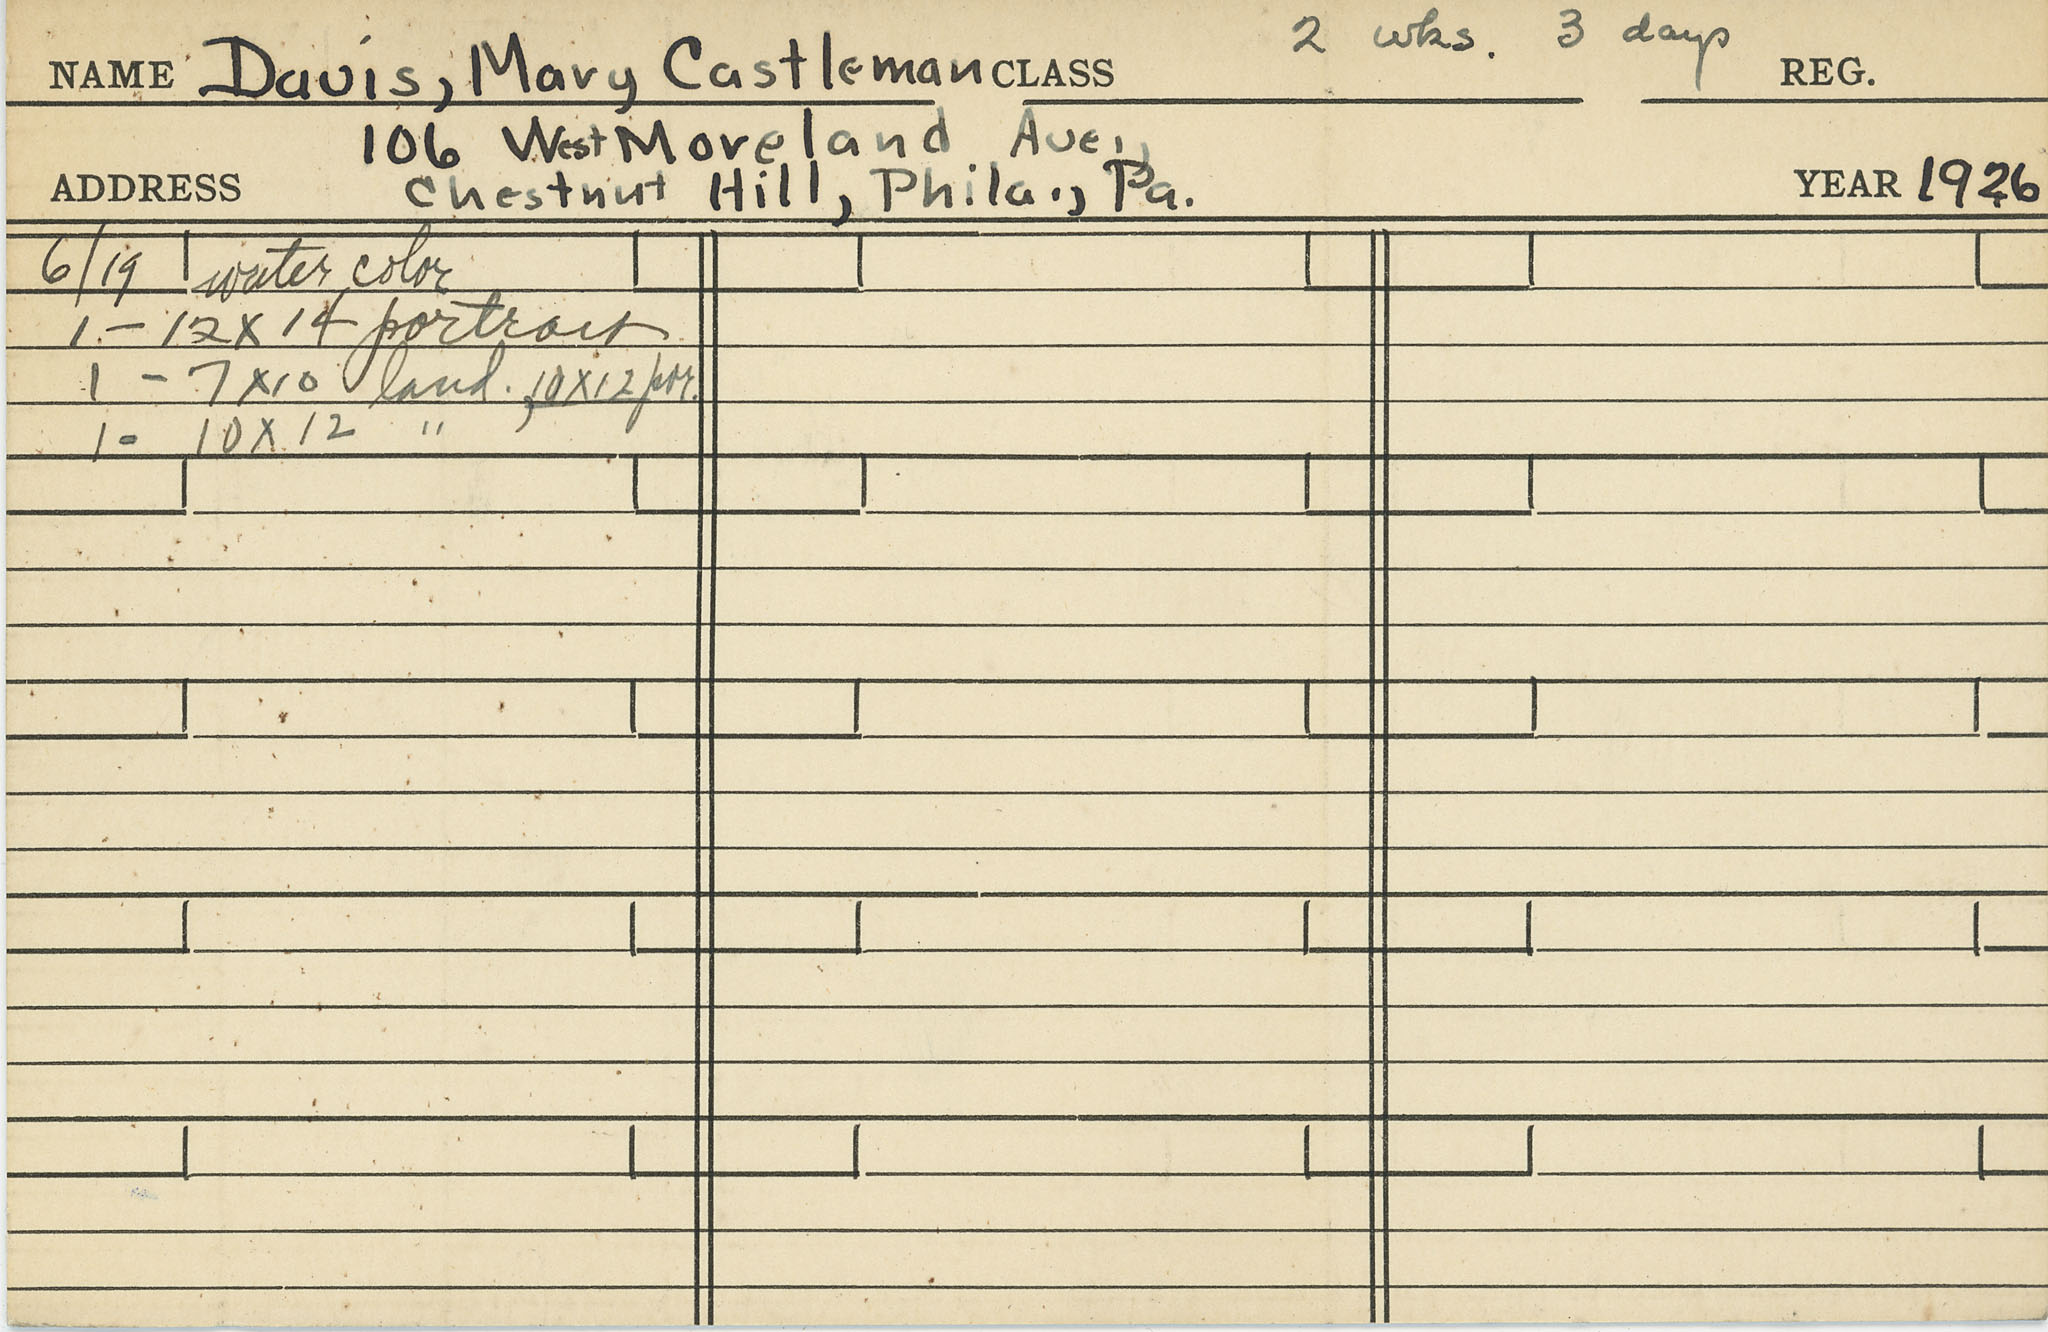 NAME Davis, Mary Castleman CLASS 2 wks. 3 days REG.
106 West Moreland Ave.,
ADDRESS Chestnut Hill, Phila., Pa. YEAR 1926
6/19 water color
1 - 12 x 14 portrait
1 - 7 x 10 land., 10 x 12 por.
1 - 10 x 12 "